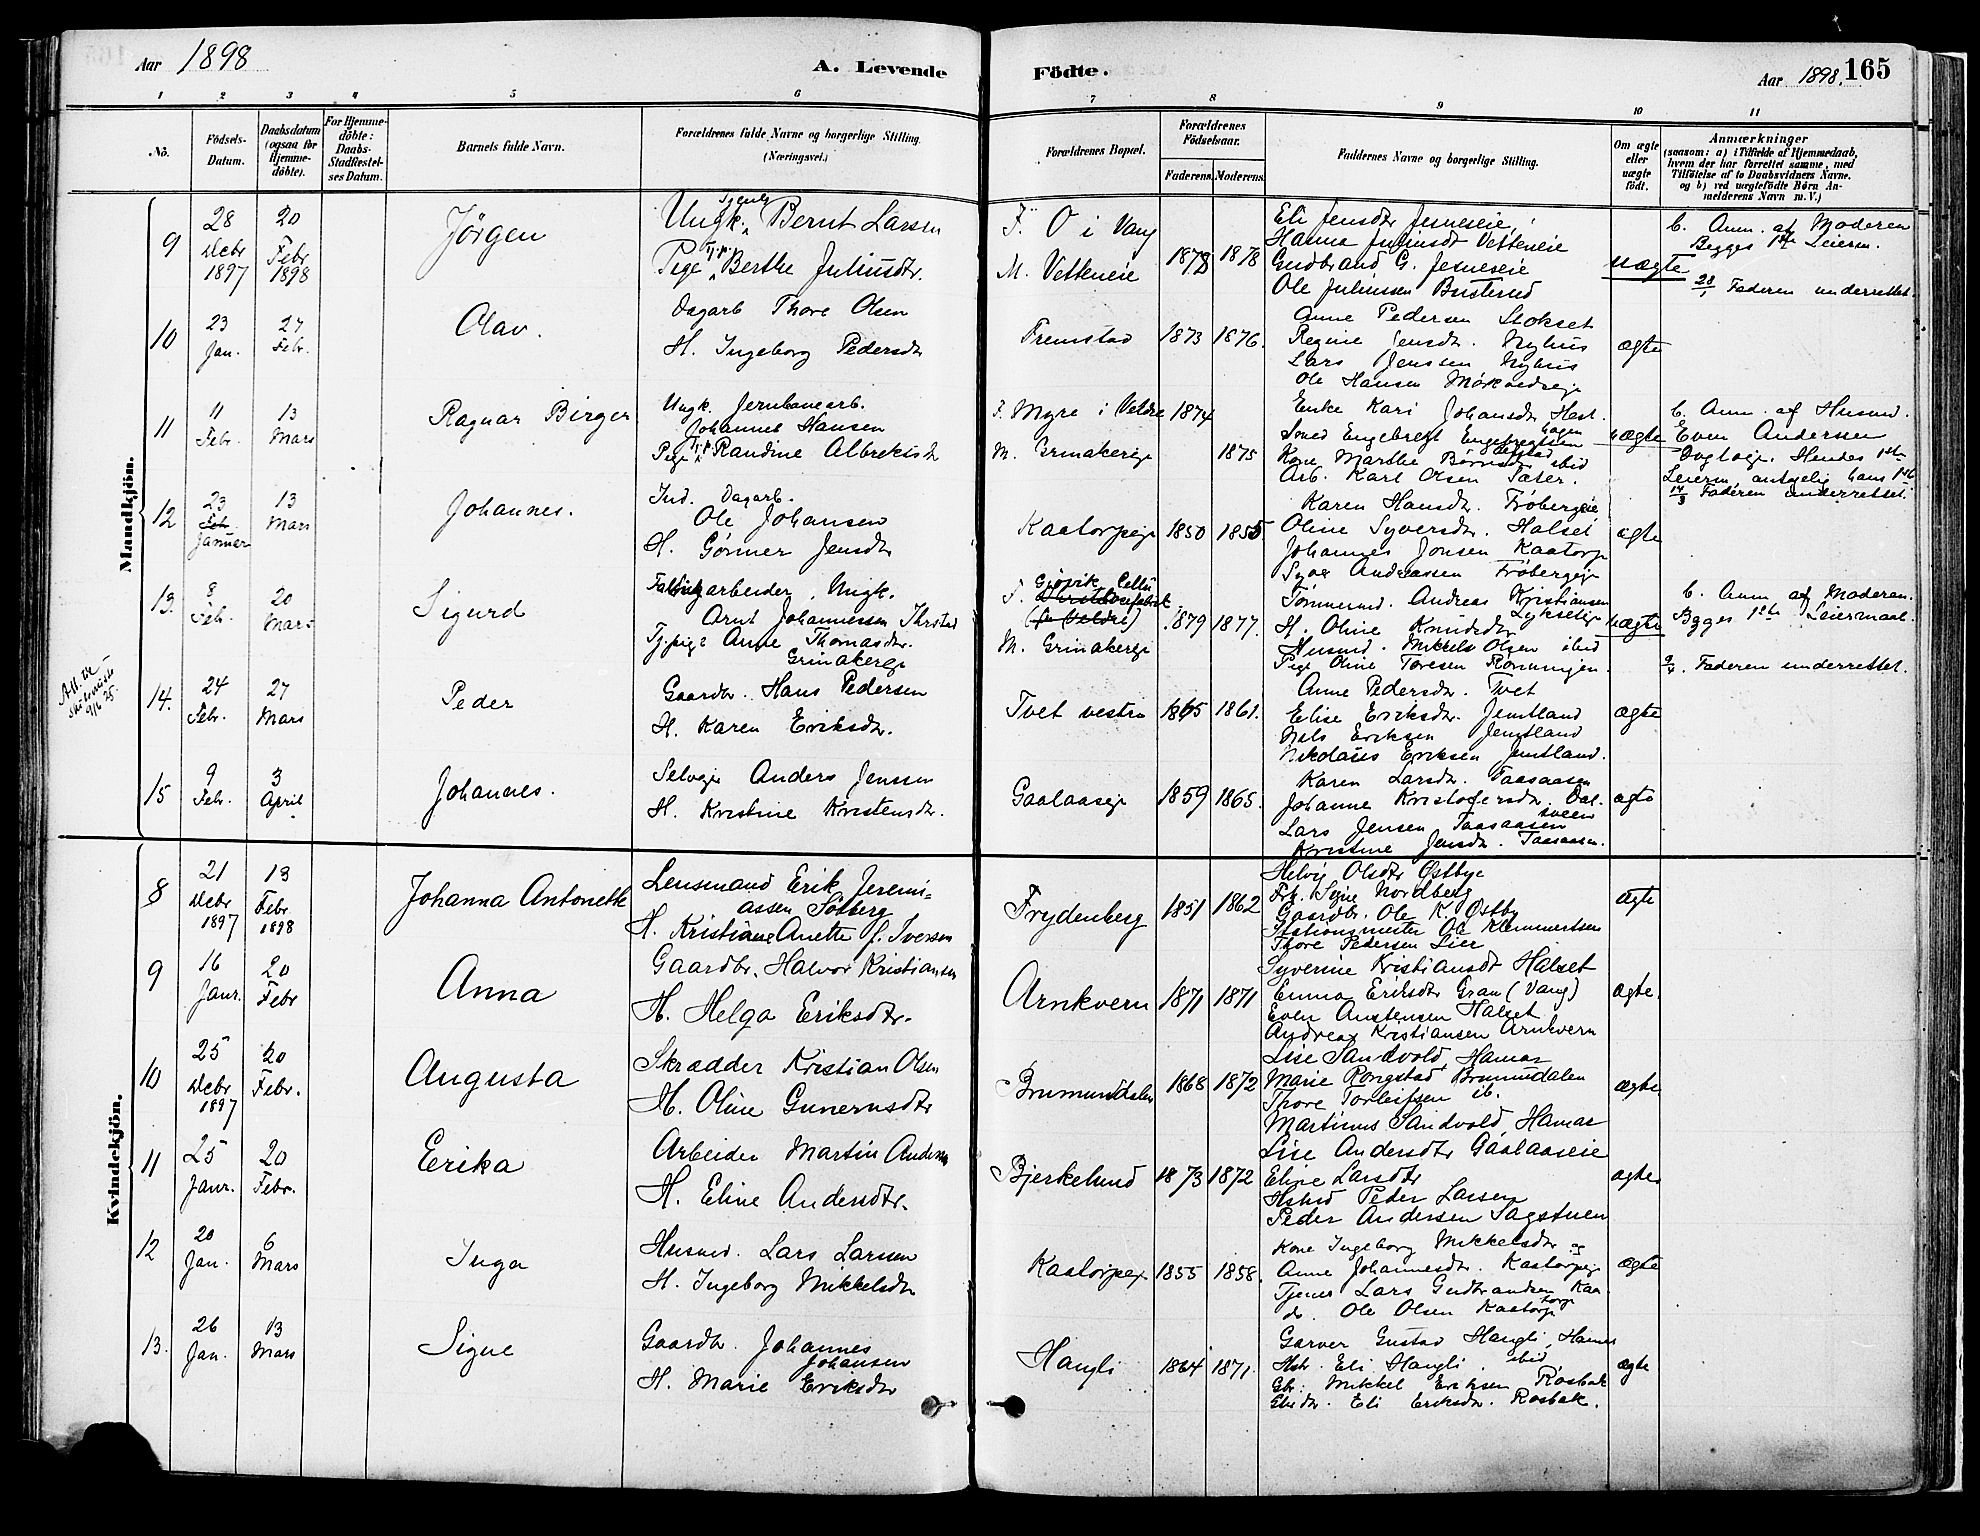 Aar 1898
A. Levende
Födte.
Aar 1898. 165
1 2 3 4 5 6 7 8 9 10 11
No.
Födsels-
Datum.
Daabsdatum
(ogsaa for
Hjemme-
döbte).
For Hjemme-
döbte:
Daabs-
Stadfæstel-
ses Datum.
Barnets fulde Navn.
Forældrenes fulde Navne og borgerlige Stilling
(Næringsvei.)
Forældrenes Bopæl.
Forældrenes
Födselsaar.
Faderens. Moderens.
Faddernes Navne og borgerlige Stilling.
Om ægte
eller
uægte
födt.
Anmærkninger
(saasom: a) i Tilfælde af Hjemmedaab,
hvem der har forrettet samme, med
Tilföielse af to Daabsvidners Navne.
og b) ved uægtefödte Börn An-
melderens Navn m. V.)
Mandkjön.
9
28
Debr
1897
20
Febr
1898
Jørgen
Ungk. Bernt Larsen
Pige Berthe Juliusdtr.
F. O i Vang
M. Vetteneie
1878 1878
Eli Jensdtr Jesneseie,
Hanna Juliusdt Vetteneie
Gudbrand G. Jesneseie
Ole Juliussen Busterud
uægte
b. Anm. af Moderen
Begges 1ste Leierm.
28/1 Faderen underrettet.
10
23
Jan.
27
Febr.
Olav.
Dagarb Thore Olsen
H. Ingeborg Pedersdtr
Fremstad
1873 1876.
Anne Pedersen Stokset
Regine Jensdtr. Nyhus
Lars Jenssen Nyhus
Ole Hansen Mørkvedseje
ægte
11
11
Febr.
13
Mars
Ragnar Birger
Ungk. Jernbanearb.
Johannes Hansen
Pige Randine Albrektsdtr
F. Myre i Veldre
M. Grinakereje
1874
1875
Enke Kari Johansdtr Hest-
hagen
Smed Engebregt Engebregtsen
Kone Marthe Børresdtr ibid
Arb. Karl Olsen Sæter.
uægte
b. Anm. af Husmd.
Even Andersen
Dogloeje. Hendes 1ste
Leierm, antagelig hans 1ste
14/3 Faderen underrettet.
12
23
Feb.
Januar
13
Mars
Johannes.
Ind. Dagarb.
Ole Johansen
H. Gørmer Jensdtr
Kaatorpeje
1850 1855
Karen Hansdtr. Frøbergeie
Oline Syversdtr. Halset
Johannes Jonsen Kaatorp
Syver Andreassen Frøbergeje
ægte
13.
8
Feb.
20
Mars
Sigurd
Fabrikarbeider, Ungk.
Arnt Johannessen Ihrstad
Tjpige Anne Thomasdtr.
Grinakereje
F. Gjøvik Cellu
(fr Veldre)
M. Grinakereje
1879 1877.
Tømmermd. Andreas Kristiansen
Lykseleje
H. Oline Knudsdtr
Husmd. Mikkels Olsen ibid
Pige Oline Toresen Rønningen.
uægte
b. Anm af Moderen.
Begges 1ste Leiermaal.
Faderen underrettet.
9/6 25.
14.
24
Febr.
27
Mars
Peder
Gaardbr. Hans Pedersen
H. Karen Eriksdtr.
Tvet vestre
1865 1861.
Anne Pedersdtr. Tvet
Elise Eriksdtr. Jemtland
Nils Eriksen Jemtland
Nikolaus Eriksen Jemtland.
ægte
15
9
Febr.
3
April
Johannes.
Selveje Anders Jenssen
H. Kristine Kristensdtr.
Gaalaaseje
1859 1865.
Karen Larsdtr. Taasaasen
Johanne Kristofersdtr. Dal-
sveen
Lars Jensen Taasaasen
Kristine Jensdtr. Taasaasen.
ægte
Kvindekjön.
8
21
Debr
1897
13
Febr
1898
Johanna Antonette
Lensmand Erik Jeremi-
assen Sötberg
H. Kristiane Anette f. Iversen
Frydenberg
1851 1862
Helvig Olsdtr Østbye
Frk. Signe Nordberg
Gaardbr. Ole K. Østby
Stationsmester Ole Klemmertsen
Thore Pedersen Lier
ægte
9
16
Janr.
20
Febr
Anna
Gaardbr. Halvor Kristiansen
H. Helga Eriksdtr.
Arnkvern
1871 1871
Syverine Kristiansdt Halset
Emma Eriksdtr Gran (Vang)
Even Austensen Halset
Andreas Kristiansen Arnkvern
ægte.
10
25
Debr
1897
20
Febr.
Augusta
Skrædder Kristian Olsen
H. Oline Gunerusdtr
Brumunddalen
1868 1872
Lise Sandvold, Hamar
Marie Rongstad Brumundalen
Thore Torleifsen ib.
Martinus Sandvold Hamar
ægte
11
25
Janr.
20
Febr.
Erika
Arbeider Martin Andersen
H. Eline Andersdtr.
Bjerkelund
1873 1872
Lise Andersdtr Gaalaaseie
Eline Larsdtr
Hsmd Peder Larsen
Peder Andersen Sagstuen
ægte
12
20
Jan.
6
Mars
Inga
Husmd. Lars Larsen
H. Ingeborg Mikkelsdtr
Kaatorpeje
1855 1858.
Kone Ingeborg Mikkelsdtr og
Anne Johannesdtr. Kaatorpeje
Tjener Lars Gudbrandsen Kaa-
torp
do. Ole Olsen Kaatorp
ægte
13.
26
Jan.
13
Mars
Signe
Gaardbr. Johannes
Johansen
H. Marie Eriksdtr
Haugli
1864 1871.
Garver Gustav Haugli, Hamar
Hstr. Eli Haugli. ibid
Gbr. Mikkel Eriksen Rosbak
Gbrdtr. Eli Eriksdtr. Rosbak.
ægte